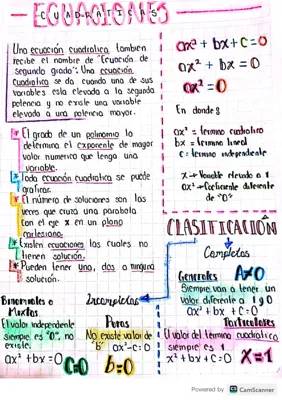 ECUACIONES
CUADRÁTICAS
Una ecuación cuadratica tambien
recibe el nombre de "Ecuación de
segundo grado". Una ecuación
cuadratica se da cuando una de sus
variables esta elevada a la segunda
potencia y no existe una variable
elevado a una potencia mayor.
El grado de un polinomio lo
determina el exponente de mayor
valor numerico que tenga una
variable.
Toda ecuación cuadratica se puede
graficar.
El número de soluciones son las
veces que cruza una parabola
con el eje x en un plano
cartesiano.
Existen ecuaciones las cuales no
tienen solución.
Pueden tener una, dos o ninguna
solución.
ax² + bx + c = 0
ax² + bx = 0
ax² = 0
En donde:
ax² = termino cuadratico
bx = termino lineal
c = termino independiente
x → Variable elevado a 1
ax² → Coeficiente diferente
de "0"
CLASIFICACIÓN
Completas
Generales A≠0
Siempre van a tener un
valor diferente a 1 y 0
ax² + bx + c = 0
Particulares
El valor del termino cuadratico
siempre es 1
x² + bx + c = 0 X=1
Incompletas
Binomiales o
Mixtas
El valor independiente
siempre es "0", no
existe.
ax² + bx = 0 C=0
Puras
No existe valor de
"b" ax²-c=0
b=0
Powered by CS CamScanner